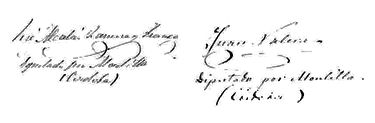 José
Diputado por Montilla
(Cordoba)
Juan Valera
Diputado por Montilla.
(Córdoba)